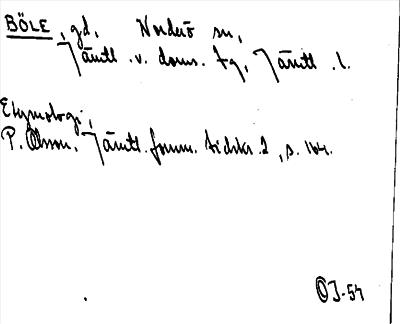 BÖLE, gd, Norderö sn,
Jämtl. v. doms. tg, Jämtl. l.
Etymologi,
P. Olsson, Jämtl. fornm. tidskr. 2, s. 164.
OJ-54